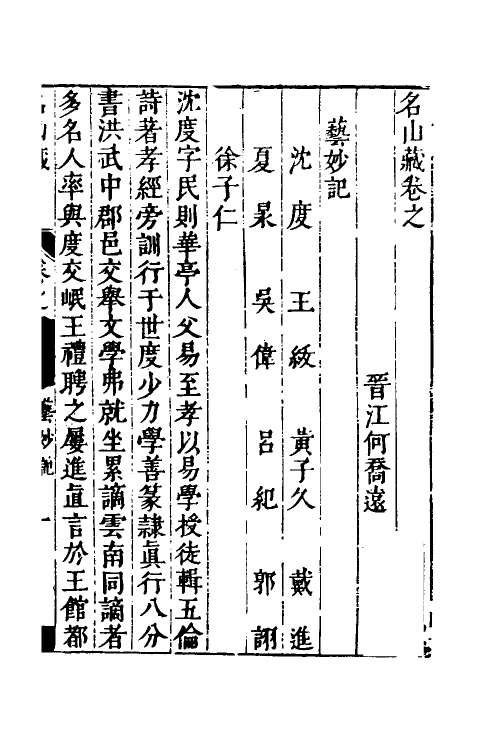 名山藏卷之
晉江何喬遠
藝妙記
沈度 王紱 黃子久 戴進
夏㫤 吳偉 呂紀 郭詡
徐子仁
沈度字民則華亭人父易至孝以易學授徒輯五倫
詩著孝經旁訓行于世度少力學善篆隷眞行八分
書洪武中郡邑交舉文學弗就坐累謫雲南同謫者
多名人率與度交岷王禮聘之屢進直言於王館都
名山藏 卷之 藝妙記 一